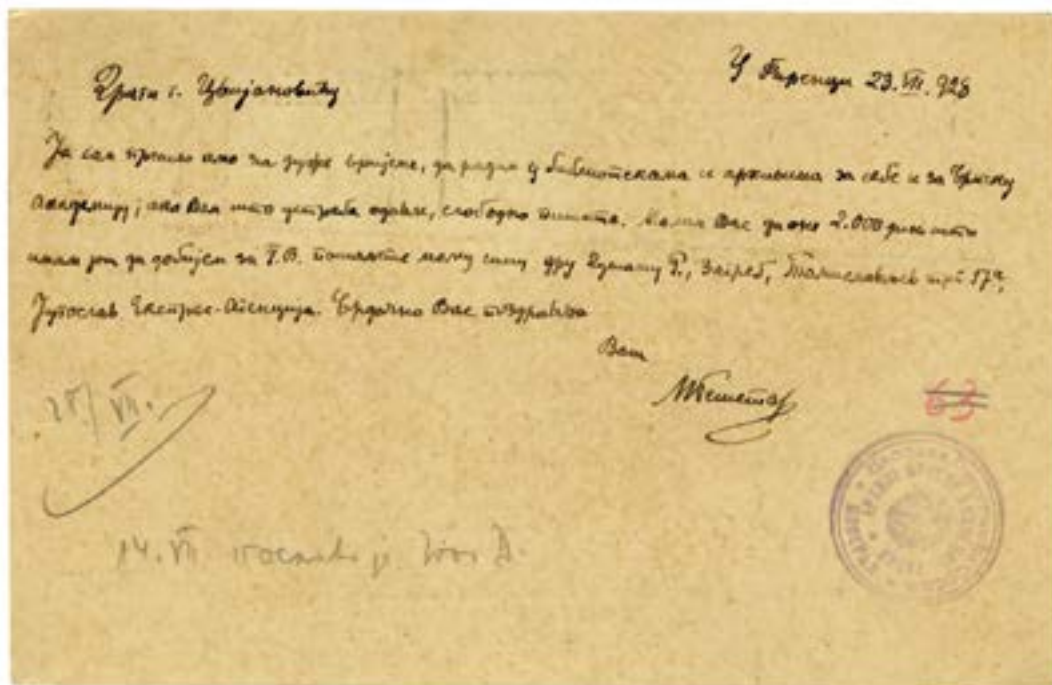 У Фиренци 23. VII. 928
Драги г. Цвијановићу
Ја сам дошао амо за дуже вријеме, да радим у библиотекама и архивима за себе и за Српску
Академију; ако Вам што устреба одавде, слободно пишите. Молим Вас да оне 2.000 дин што
имам још да добијем за Г.В. пошаљете моме сину дру Р., Загреб, 17ª,
Југослав Експрес-Агенција. Срдачно Вас поздравља
Ваш
МРешетар
63
25/VII.
14. VII послао